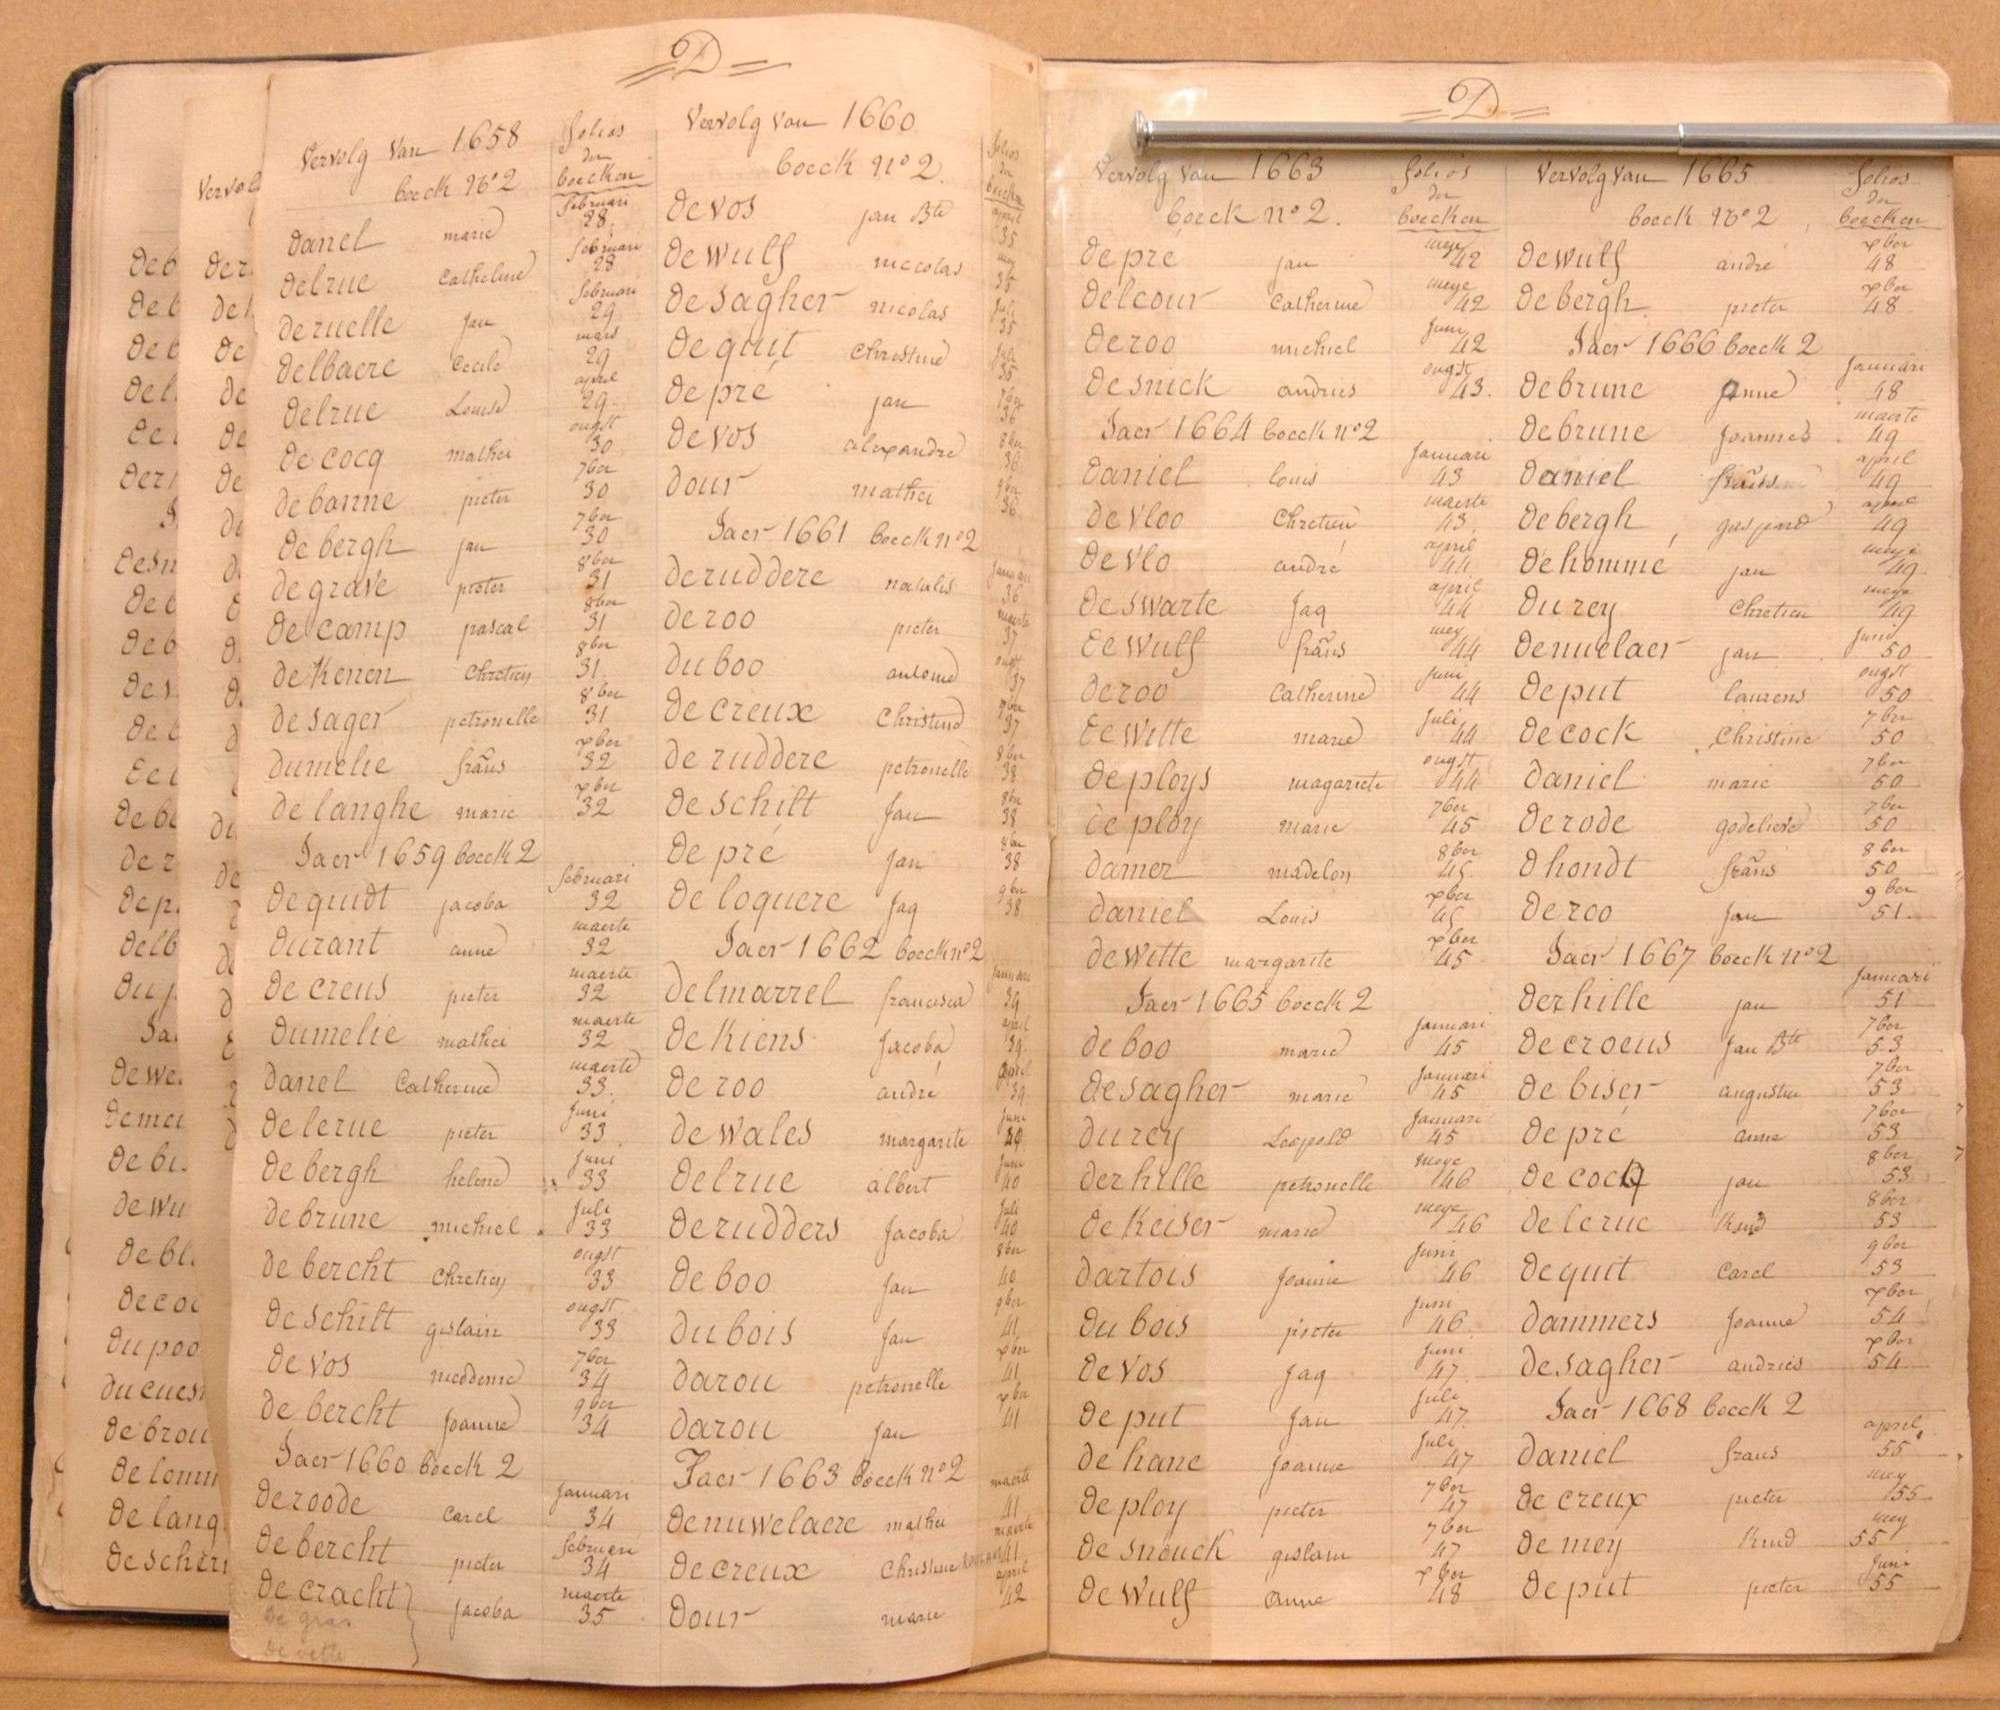 D
Vervolg Van 1658
boeck No 2
folios
der
boecken
danel marie februari 28
delrue Catheline februari 28
deruelle jan februari 29
delbaere Cecile mars 29
delrue Louise april 29
de cocq mathei ougst 30
de banne pieter 7ber 30
de bergh jan 7ber 30
de grave pieter 8ber 31
de camp pascal 8ber 31
de Kenen Chretien 8ber 31
de sager petronelle 8ber 31
dumelie frans xber 32
de langhe marie xber 32
Jaer 1659 boeck 2
de quidt jacoba februari 32
durant anne maerte 32
de creus pieter maerte 32
dumelie mathei maerte 32
danel Catherine maerte 33
de lerue pieter juni 33
de bergh helene juni 33
de brune michiel juli 33
de bercht Chretien ougst 33
de schilt gislain ougst 33
de vos 7ber 34
de bercht Joanne 9ber 34
Jaer 1660 boeck 2
de roode Carel januari 34
de bercht pieter februari 34
de cracht jacoba maerte 35
de gras
de vette
Vervolg van 1660
boeck no 2
folios
der
boecken
de vos jan Bte april 35
de wulf niccolas mey 35
de sagher nicolas juli 35
de quit Christine juli 35
de pré jan 7ber 36
de vos alexandre 8ber 36
dour mathei 9ber 36
Jaer 1661 boeck no 2
de ruddere natalis januari 36
de roo pieter maerte 37
du boo antoine ougst 37
de creux Christine 7ber 37
de ruddere petronelle 8ber 38
de schilt Jan 8ber 38
de pré Jan 8ber 38
de loquere Jaq 9ber 38
Jaer 1662 boeck no 2
delmarrel francisca januari 39
de Kiens Jacoba april 39
de roo andré april 39
de wales margarite juni
delrue albert juni 40
de rudders Jacoba juli 40
de boo Jan 8ber 40
du bois Jan 9ber 41
darou petronelle xber 41
darou Jan xber 41
Jaer 1663 boeck no 2
denuwelaere mathei maerte 41
de creux Christine maerte 41
dour marie april 42
D
Vervolg van 1663
boeck no 2.
folios
der
boecken
de pré jan meye 42
delcour Catherine meye 42
de roo michiel juni 42
de snick andries ougst 43.
Jaer 1664 boeck no 2
daniel louis januari 43
de vloo Chretien maerte 43
de vlo andré april 44
de swarte Jaq april 44
de wulf frans mey 44
de roo Catherine juni 44
de witte marie juli 44
de ploys magariete ougst 44
de ploy marie 7ber 45
damer madelon 8ber 45
daniel Louis xber 45
de witte margarite xber 45
Jaer 1665 boeck 2
de boo marie januari 45
de sagher marie januari 45
du rey Leopold januari 45
der hille petronelle meye 46
de Keiser marie meye 46
dartois Joanne juni 46
du bois pieter juni 46
de vos Jaq juni 47
de put Jan juli 47
de hane Joanne juli 47
de ploy pieter 7ber 47
de snouck gislain 7ber 47
de wulf anne xber 48
Vervolg van 1665
boeck No 2
folios
der
boecken
de wulf andré xber 48
de bergh pieter xber 48
Jaer 1666 boeck 2
de brune Janne januari 48
de brune joannes maerte 49
daniel frans april 49
de bergh gaspard april 49
de hommé jan meye 49
du rey Chretien meye 49
denuelaer jan juni 50
de put laurens ougst 50
de cock Christine 7ber 50
daniel marie 7ber 50
de rode godelieve 7ber 50
d hondt frans 8ber 50
de roo jan 9ber 51
Jaer 1667 boeck no 2
der hille jan januari 51
de croeus Jan Bte 7ber 53
de biser augustin 7ber 53
de pré anne 7ber 53
de cocq jan 8ber 53
de lerue Kind 8ber 53
de quit Carel 9ber 53
dammers Joanne xber 54
de sagher andries xber 54
Jaer 1668 boeck 2
daniel frans april 55
de creux pieter mey 55
de mey Kind mey 55
de put pieter juni 55